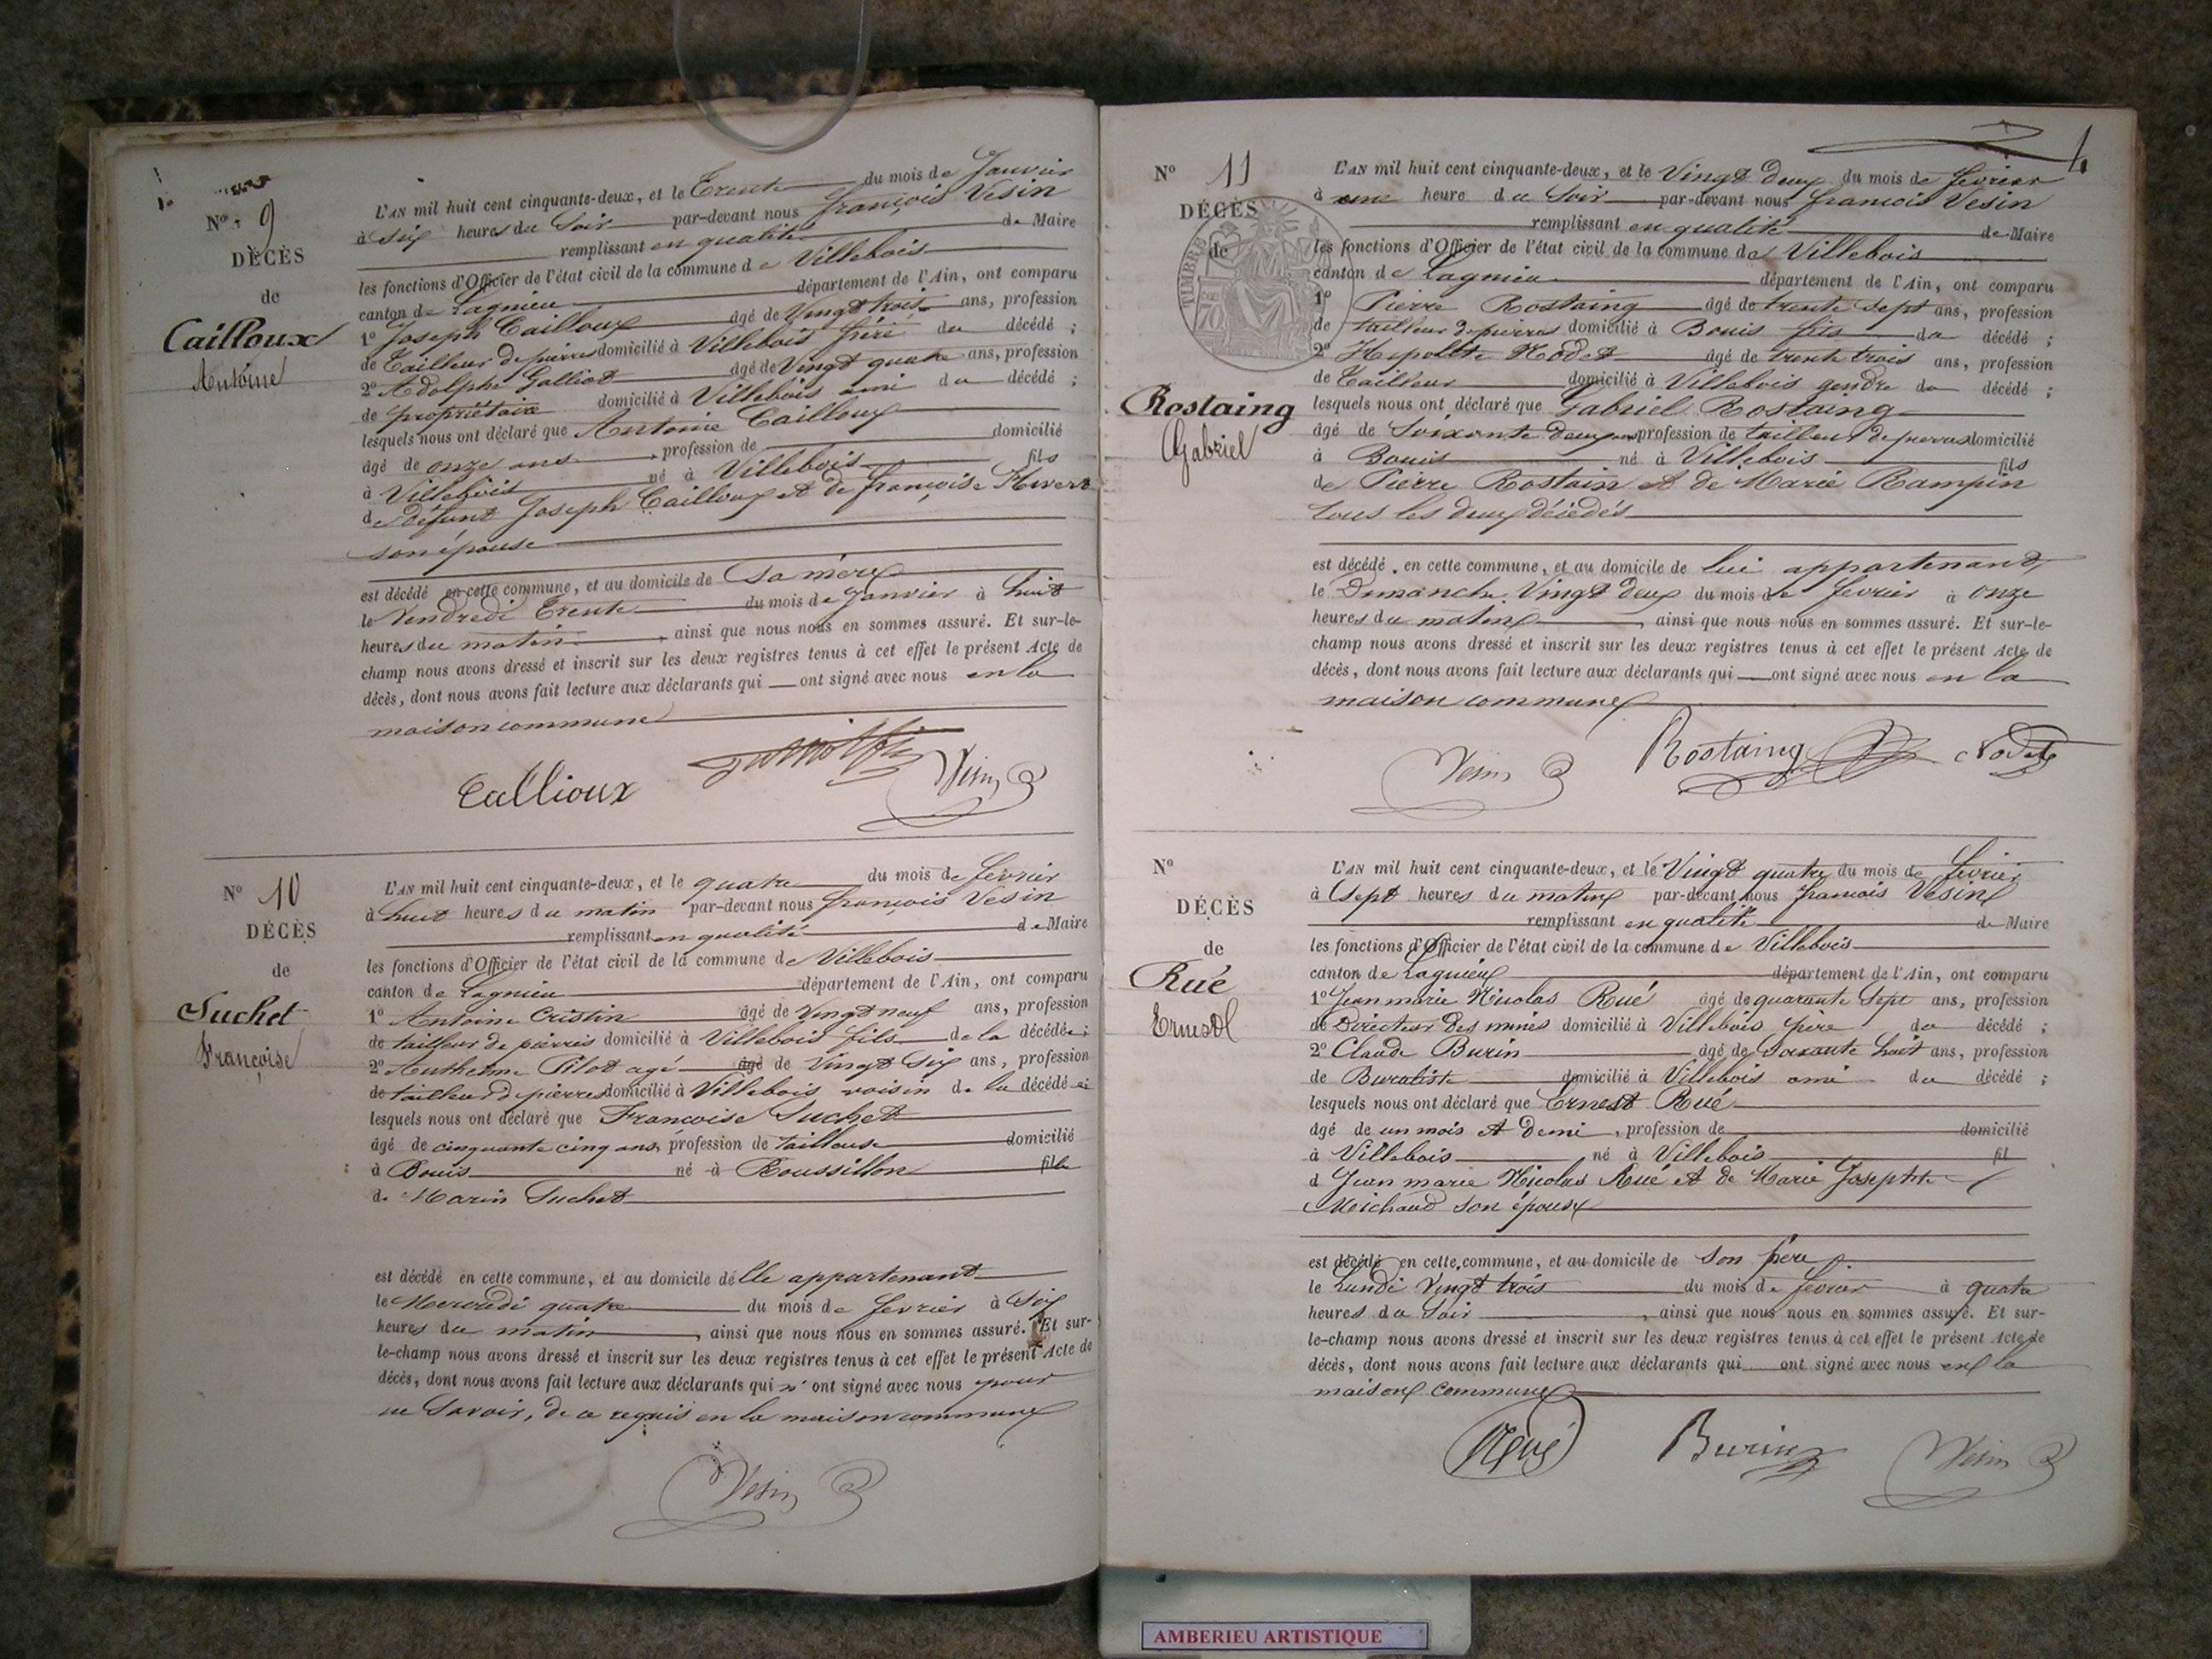 Nº 9
DÉCÈS
de
Cailloux
Antoine
L'AN mil huit cent cinquante-deux, et le Trente du mois de Janvier
à six heures du Soir par-devant nous françois Vesin
remplissant en qualité de Maire
les fonctions d'Officier de l'état civil de la commune de Villebois
canton de Lagnieu département de l'Ain, ont comparu
1º Joseph Cailloux âgé de Vingt trois ans, profession
de Tailleur de pierres domicilié à Villebois frère du décédé ;
2º Adolphe Galliot âgé de Vingt quatre ans, profession
de propriétaire domicilié à Villebois ami du décédé ;
lesquels nous ont déclaré que Antoine Cailloux
âgé de onze ans profession de domicilié
à Villebois né à Villebois fils
de défunt Joseph Cailloux et de françoise
son épouse
est décédé en cette commune, et au domicile de sa mère
le Vendredi Trente du mois de Janvier à huit
heures du matin , ainsi que nous nous en sommes assuré. Et sur-le-
champ nous avons dressé et inscrit sur les deux registres tenus à cet effet le présent Acte de
décès, dont nous avons fait lecture aux déclarants qui ont signé avec nous en la
maison commune
Callioux Vesin
Nº 10
DÉCÈS
de
Suchet
Françoise
L'AN mil huit cent cinquante-deux, et le quatre du mois de fevrier
à huit heures du matin par-devant nous françois Vesin
remplissant en qualité de Maire
les fonctions d'Officier de l'état civil de la commune de Villebois
canton de Lagnieu département de l'Ain, ont comparu
1º Antoine Cristin âgé de Vingt neuf ans, profession
de tailleur de pierres domicilié à Villebois fils de la décédée ;
2º Anthelme Pilot agé âgé de Vingt Six ans, profession
de tailleur d pierres domicilié à Villebois voisin de la décédée
lesquels nous ont déclaré que Françoise Suchet
âgé de cinquante cinq ans, profession de tailleuse domicilié
à Bouis né à Roussillon fille
de Marin Suchet
est décédé en cette commune, et au domicile délle appartenant
le Mercredi quatre du mois de fevrier à Six
heures du matin , ainsi que nous nous en sommes assuré. Et sur-
le-champ nous avons dressé et inscrit sur les deux registres tenus à cet effet le présent Acte de
décès, dont nous avons fait lecture aux déclarants qui n' ont signé avec nous pour
ne Savoir, de ce requis en la maison commune
Vesin
Nº 11
DÉCÈS
de
TIMBRE
70
Rostaing
Gabriel
L'AN mil huit cent cinquante-deux, et le Vingt deux du mois de fevrier
à une heure du Soir par-devant nous françois Vesin
remplissant en qualité de Maire
les fonctions d'Officier de l'état civil de la commune de Villebois
canton de Lagnieu département de l'Ain, ont comparu
1º Pierre Rostaing âgé de trente sept ans, profession
de tailleur de pierres domicilié à Bouis fils du décédé ;
2º Hipolite Nodet âgé de trente trois ans, profession
de Tailleur domicilié à Villebois gendre du décédé ;
lesquels nous ont déclaré que Gabriel Rostaing
âgé de Soixante deux ans profession de tailleur de pierres domicilié
à Bouis né à Villebois fils
de Pierre Rostain et de Marie Rampin
tous les deux décédés
est décédé en cette commune, et au domicile de lui appartenant
le Dimanche Vingt deux du mois de fevrier à onze
heures du matin , ainsi que nous nous en sommes assuré. Et sur-le-
champ nous avons dressé et inscrit sur les deux registres tenus à cet effet le présent Acte de
décès, dont nous avons fait lecture aux déclarants qui ont signé avec nous en la
maison commune
Vesin Rostaing Nodet
Nº
DÉCÈS
de
Rué
Ernest
L'AN mil huit cent cinquante-deux, et le Vingt quatre du mois de fevrier
à Sept heures du matin par-devant nous françois Vesin
remplissant en qualité de Maire
les fonctions d'Officier de l'état civil de la commune de Villebois
canton de Lagnieu département de l'Ain, ont comparu
1º Jean marie Nicolas Rué âgé de quarante Sept ans, profession
de Directeur Des mines domicilié à Villebois père du décédé ;
2º Claude Burin âgé de Soixante huit ans, profession
de Buraliste domicilié à Villebois ami du décédé ;
lesquels nous ont déclaré que Ernest Rué
âgé de un mois et demi , profession de domicilié
à Villebois né à Villebois fil
d Jean marie Nicolas Rué et de Marie Josephte
Meichaud son épouse
est décédé en cette commune, et au domicile de son père
le Lundi Vingt trois du mois de fevrier à quatre
heures du Soir , ainsi que nous nous en sommes assuré. Et sur-
le-champ nous avons dressé et inscrit sur les deux registres tenus à cet effet le présent Acte de
décès, dont nous avons fait lecture aux déclarants qui ont signé avec nous en la
maison commune
Rué Burin Vesin
AMBERIEU ARTISTIQUE